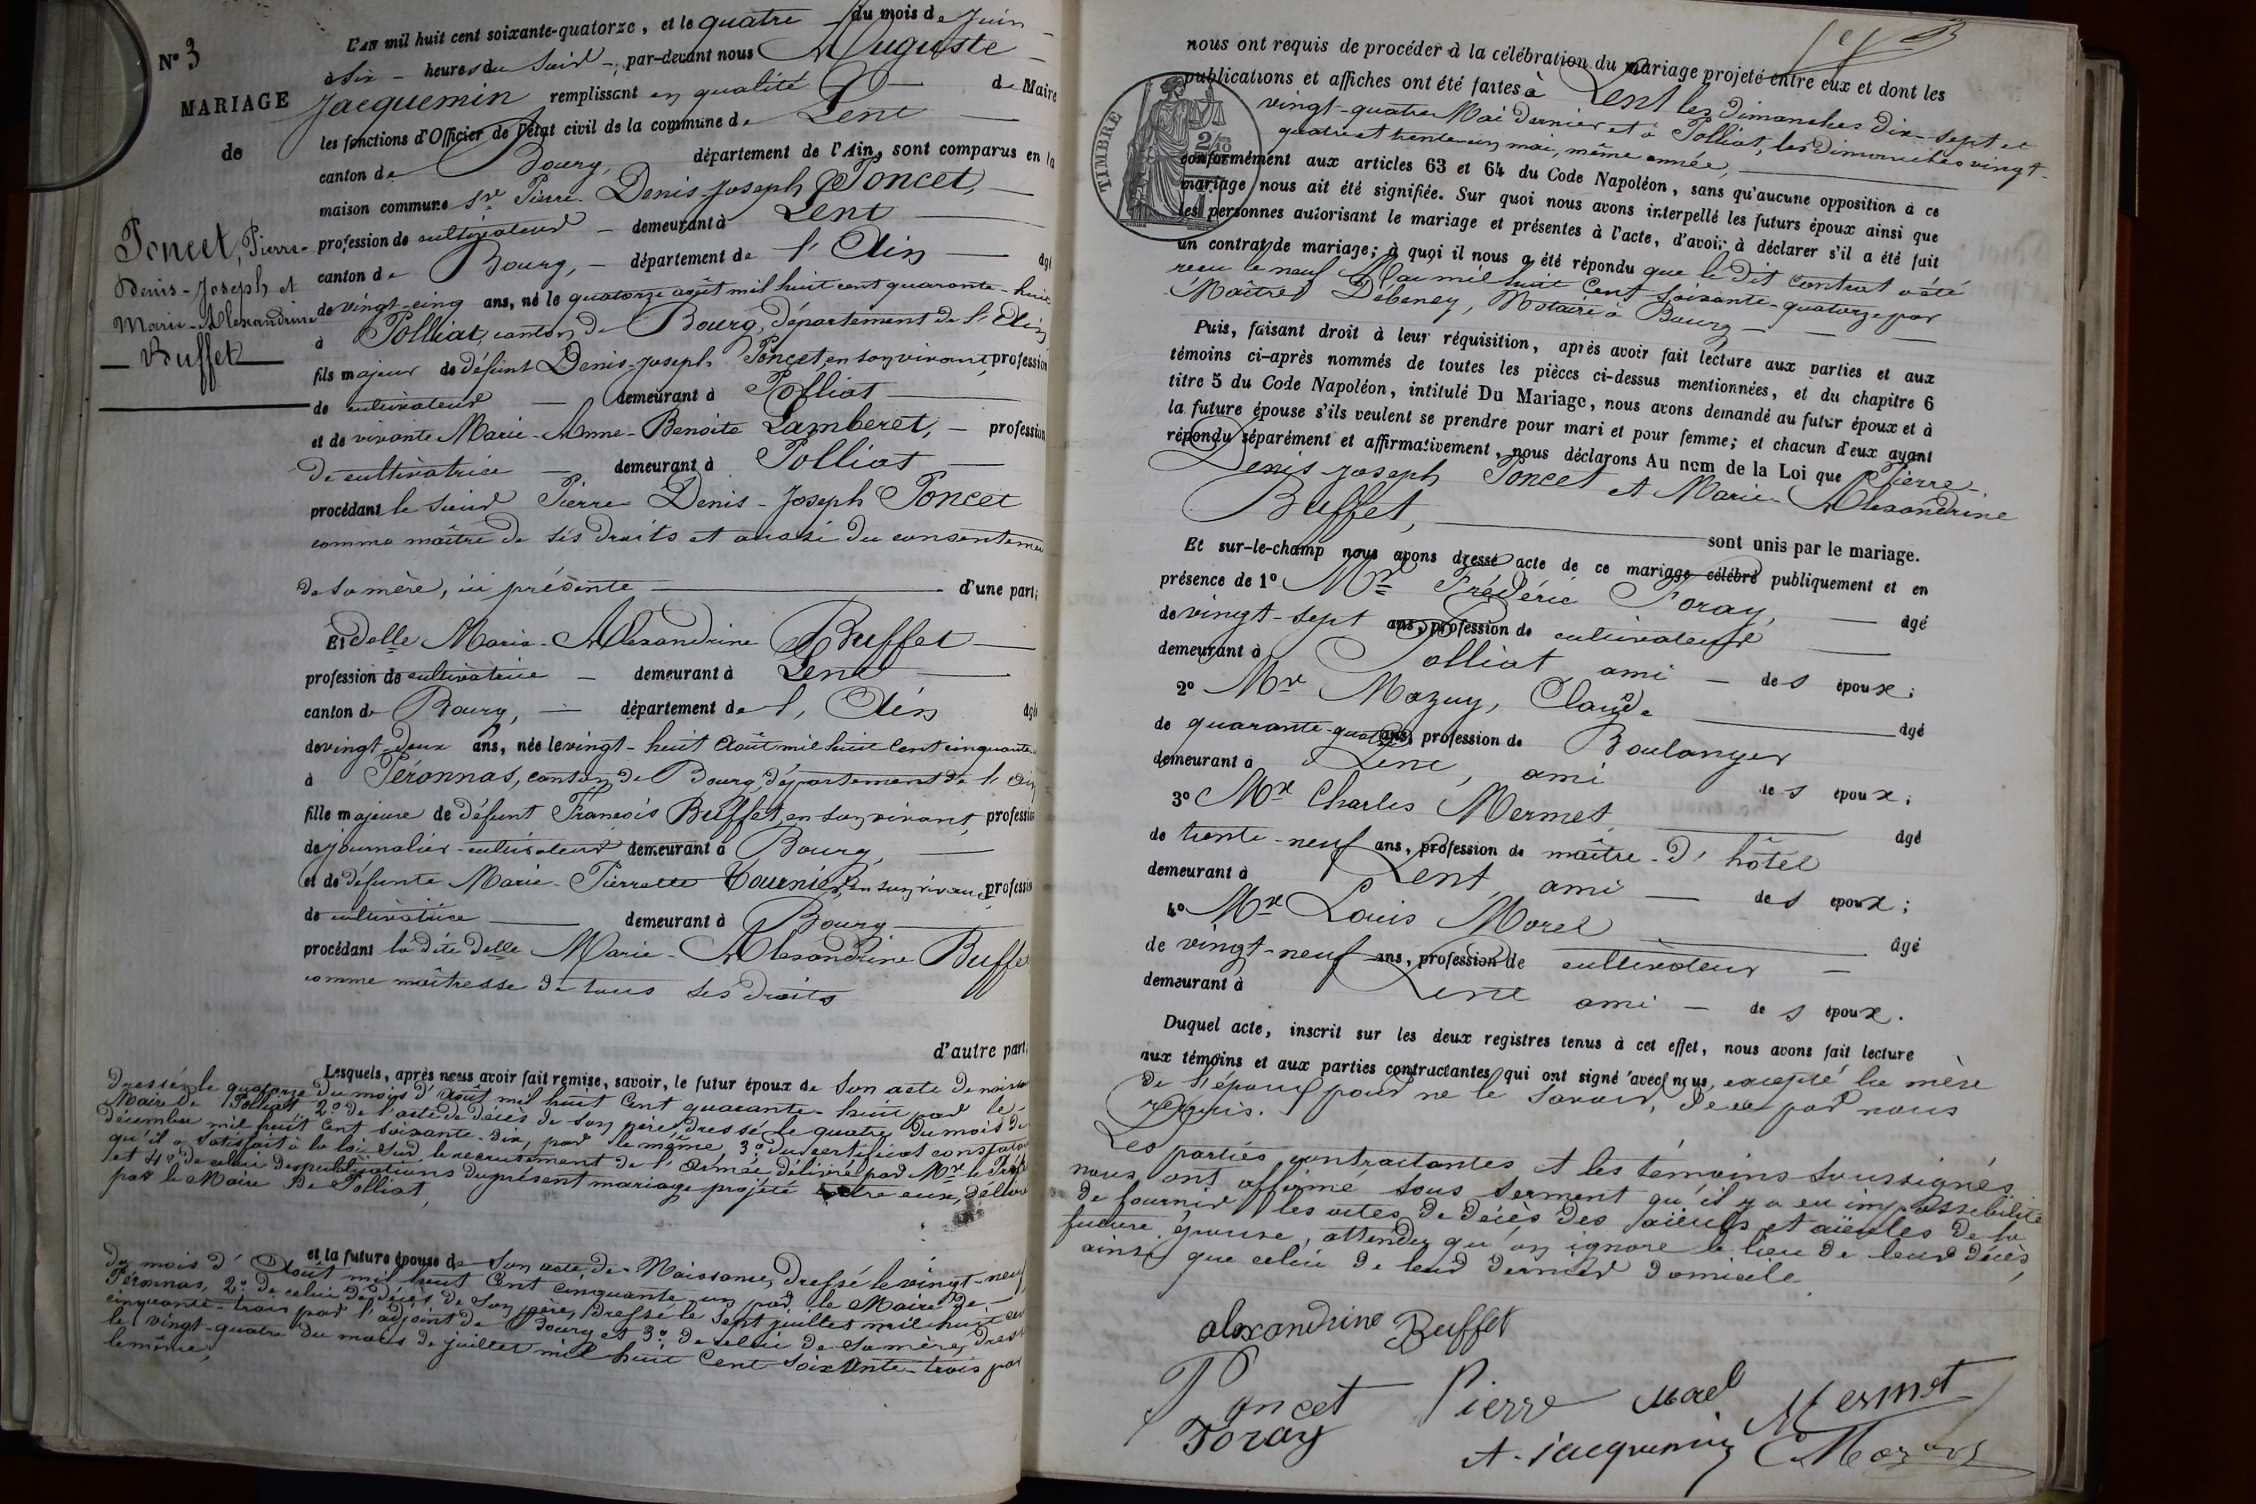 N° 3
MARIAGE
de
Poncet, Pierre-
Denis-Joseph et
Marie-Alexandrine
Buffet
L'AN mil huit cent soixante-quatorze, et le quatre du mois de Juin
à six heures du soir, par-devant nous Auguste
Jacquemin remplissant en qualité de Maire
les fonctions d'Officier de l'état civil de la commune de Lent
canton de Bourg, département de l'Ain, sont comparus en la
maison commune sr Pierre Denis Joseph Poncet,
profession de cultivateur demeurant à Lent
canton de Bourg, département de l'Ain âgé
de vingt-cinq ans, né le quatorze août mil huit cent quarante-huit
à Polliat, canton de Bourg, département de l'Ain
fils majeur de défunt Denis-Joseph Poncet, en son vivant, profession
de cultivateur demeurant à Polliat
et de vivante Marie-Anne-Benoite Lamberet, profession
de cultivatrice demeurant à Polliat
procédant le sieur Pierre Denis-Joseph Poncet
comme maître de ses droits et aussi du consentemen
de sa mère, ici présente d'une part;
Et delle Marie-Alexandrine Buffet
profession de cultivatrice demeurant à Lent
canton de Bourg, département de l'Ain âgée
de vingt-deux ans, née le vingt-huit Août mil huit cent cinquante-
à Péronnas, canton de Bourg, département de l'Ain
fille majeure de défunt François Buffet, en son vivant, profession
de journalier-cultivateur demeurant à Bourg,
et de défunte Marie-Pierrette Tournier, en son vivant, profession
de cultivatrice demeurant à Bourg
procédant la dite delle Marie-Alexandrine Buffet
comme maîtresse de tous ses droits
d'autre part;
Lesquels, après nous avoir fait remise, savoir, le futur époux de son acte de naissan
dressé le quatorze du mois d'Août mil huit Cent quarante-huit par le
Maire de Polliat, 2° de l'acte de décès de son père, dressé le quatre du mois de
décembre mil huit Cent soixante-dix, par le même 3° du certificat constatan
qu'il a satisfait à la loi sur le recrutement de l'Armée, délivré par Mr le Préfet
et 4° de celui des publications du présent mariage projeté entre eux, délivré
par le Maire de Polliat,
et la future épouse de son acte de Naissance, dressé le vingt-neuf
du mois d'Août mil huit Cent cinquante-un par le Maire de
Péronnas, 2° de celui de décès de son père, dressé le sept juillet mil huit cen
cinquante-trois par l'adjoint de Bourg et 3° de celui de sa mère, dress
le vingt-quatre du mois de juillet mil huit Cent soixante-trois par
le même,
nous ont requis de procéder à la célébration du mariage projeté entre eux et dont les
publications et affiches ont été faites à Lent les dimanches dix-sept et
vingt-quatre Mai dernier et à Polliat, les dimanches vingt-
quatre et trente-un mai, même année,
conformément aux articles 63 et 64 du Code Napoléon, sans qu'aucune opposition à ce
mariage nous ait été signifiée. Sur quoi nous avons interpellé les futurs époux ainsi que
les personnes autorisant le mariage et présentes à l'acte, d'avoir à déclarer s'il a été fait
un contrat de mariage; à quoi il nous a été répondu que le dit contrat a été
reçu le neuf Mai mil huit Cent soixante-quatorze par
Maître Débeney, Notaire à Bourg
Puis, faisant droit à leur réquisition, après avoir fait lecture aux parties et aux
témoins ci-après nommés de toutes les pièces ci-dessus mentionnées, et du chapitre 6
titre 5 du Code Napoléon, intitulé Du Mariage, nous avons demandé au futur époux et à
la future épouse s'ils veulent se prendre pour mari et pour femme; et chacun d'eux ayant
répondu séparément et affirmativement, nous déclarons Au nom de la Loi que Pierre-
Denis Joseph Poncet et Marie-Alexandrine
Buffet, sont unis par le mariage.
Et sur-le-champ nous avons dressé acte de ce mariage célébré publiquement et en
présence de 1° Mr Frédéric Foray, âgé
de vingt-sept ans, profession de cultivateur
demeurant à Polliat ami des époux;
2° Mr Mazuy, Claude âgé
de quarante-quatre ans, profession de Boulanger
demeurant à Lent, ami des époux;
3° Mr Charles Mermet, âgé
de trente-neuf ans, profession de maître-d'hôtel
demeurant à Lent, ami des époux;
4° Mr Louis Morel âgé
de vingt-neuf ans, profession de cultivateur
demeurant à Lent ami des époux.
Duquel acte, inscrit sur les deux registres tenus à cet effet, nous avons fait lecture
aux témoins et aux parties contractantes qui ont signé avec nous, excepté la mère
de l'époux pour ne le savoir, de ce par nous
requis.
Les parties contractantes et les témoins soussignés
nous ont affirmé sous serment qu'il y a eu impossibilité
de fournir les actes de décès des aïeuls et aïeules de la
future épouse, attendu qu'on ignore le lieu de leur décès,
ainsi que celui de leur dernier domicile
TIMBRE
alexandrine Buffet
Poncet Pierre Morel Mermet
Foray A. Jacquemin Mazuy